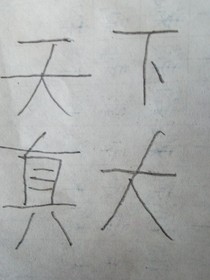 天下
真大